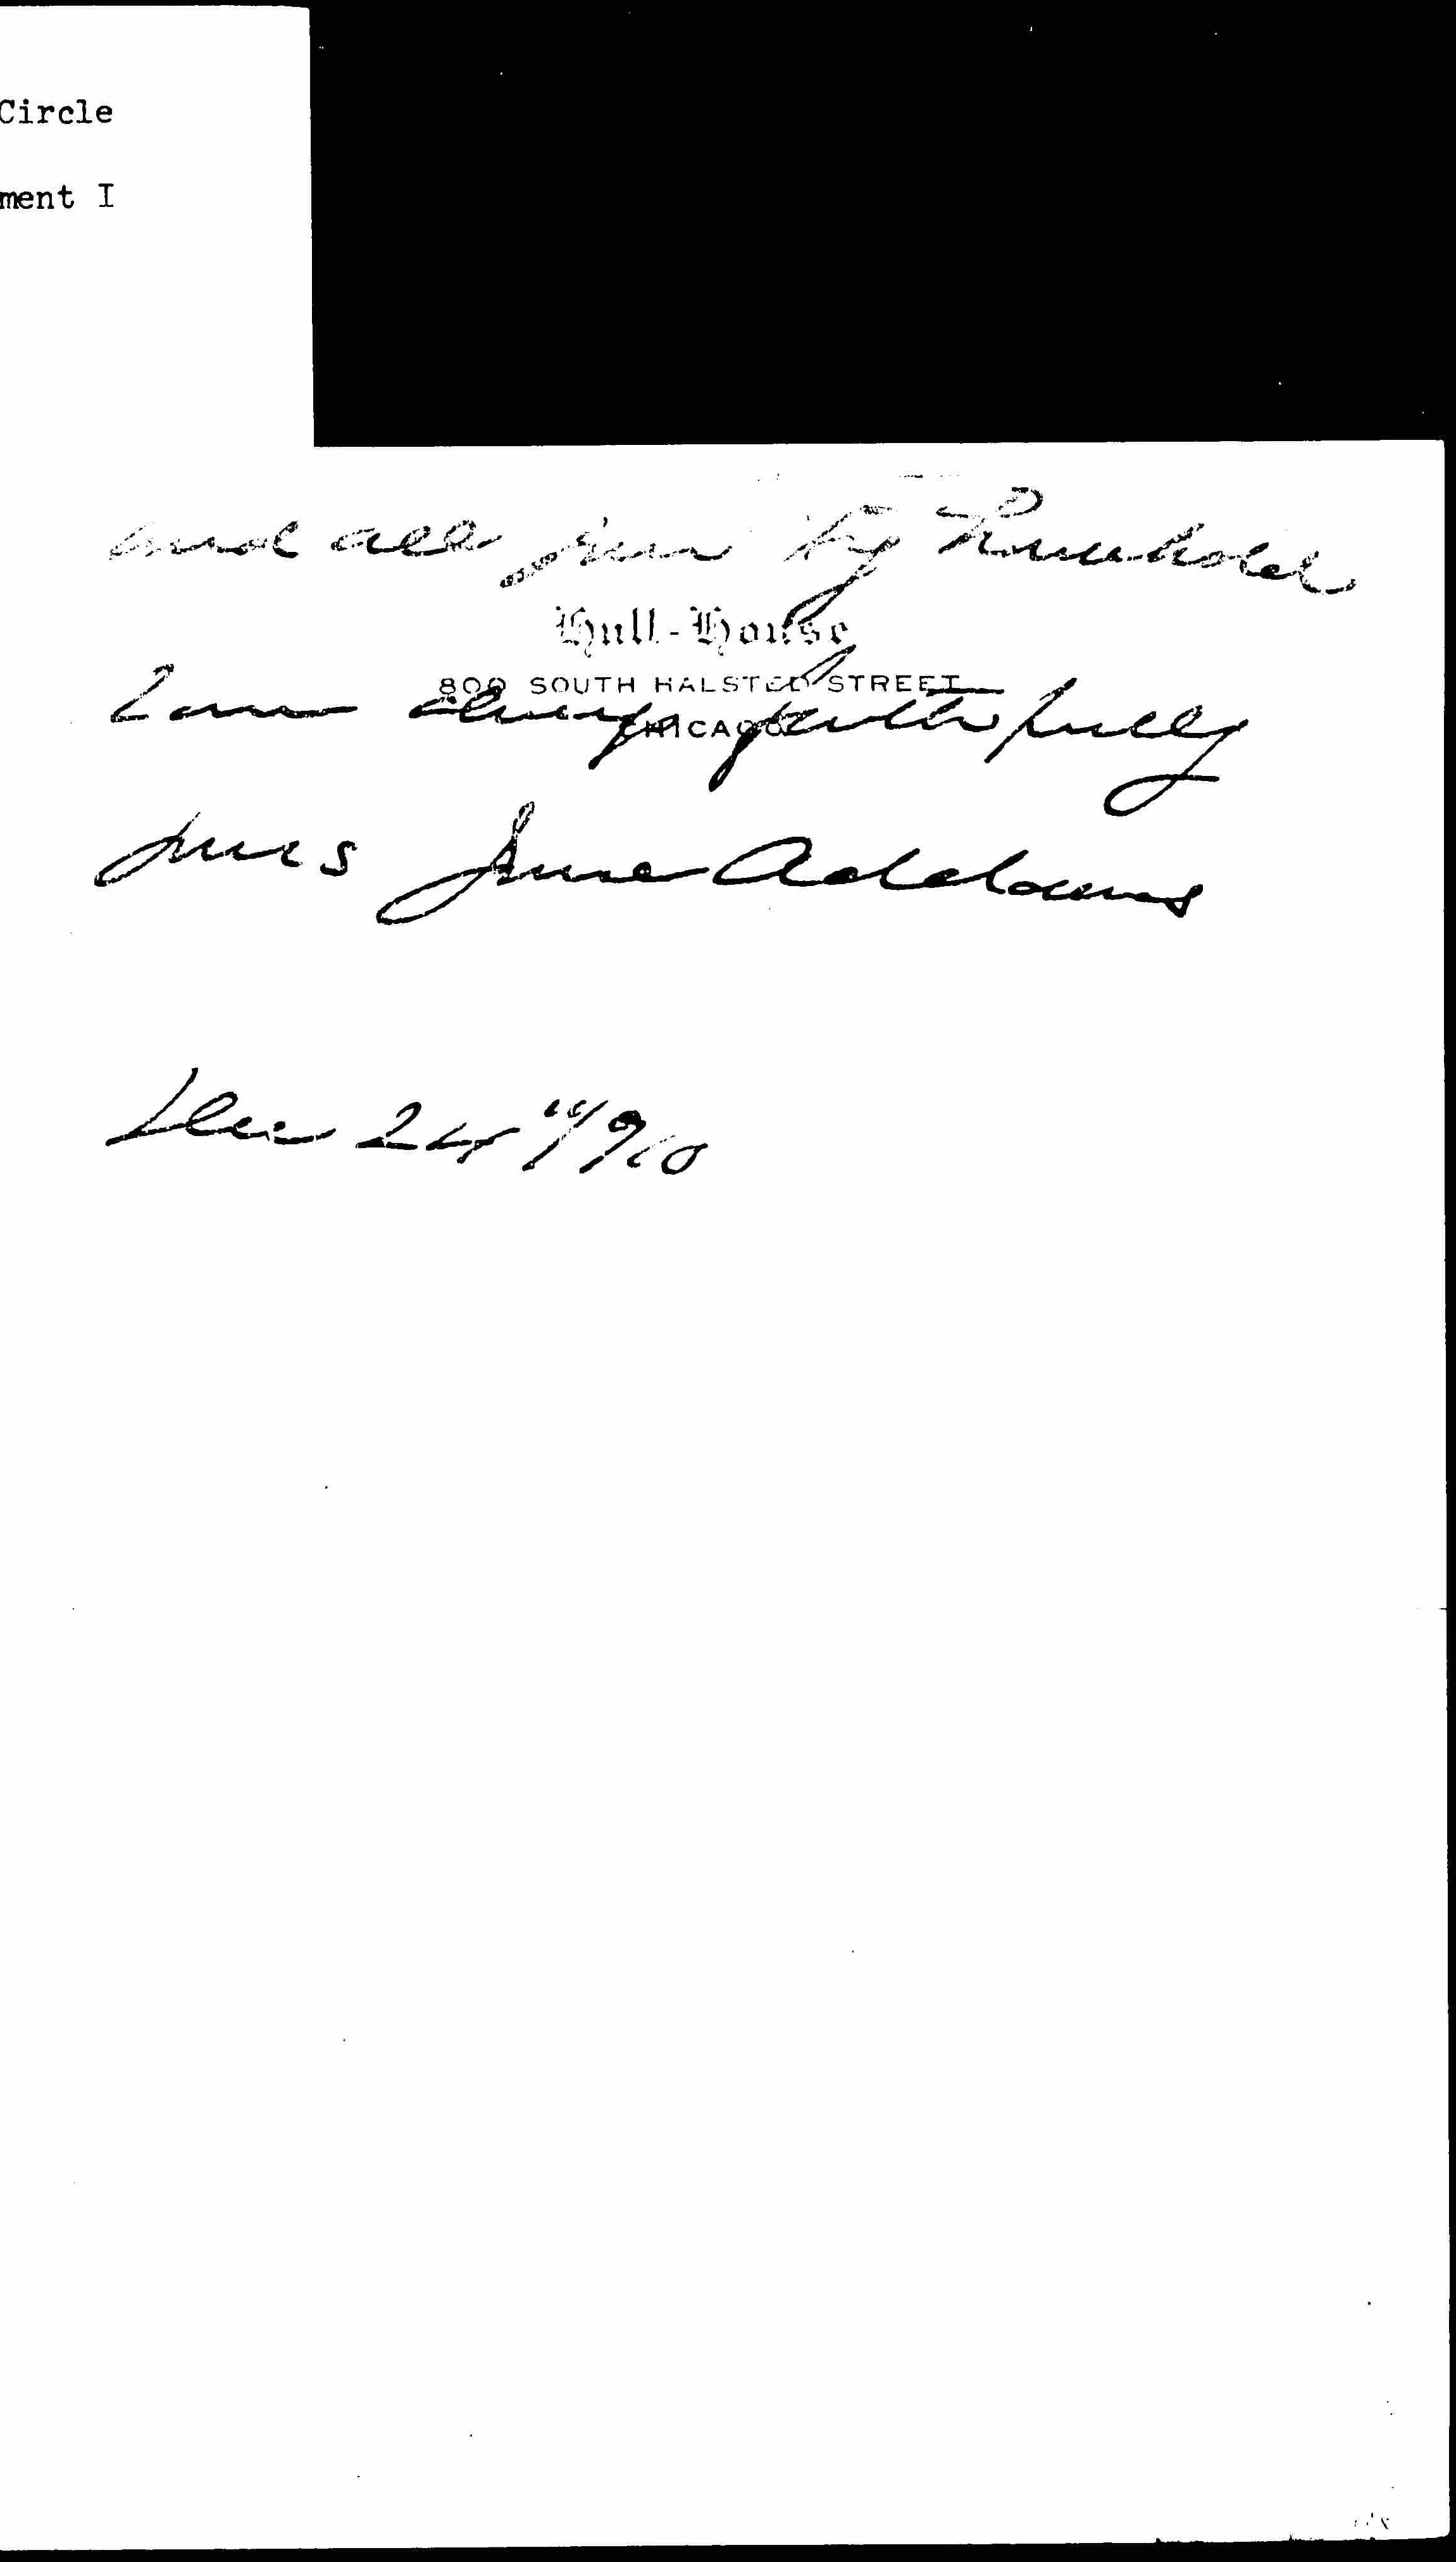 Circle
ment I
and all your big household
Hull-House
800 SOUTH HALSTED STREET
CHICAGO
I am always faithfully
yours Jane Addams
Dec 24" 1910